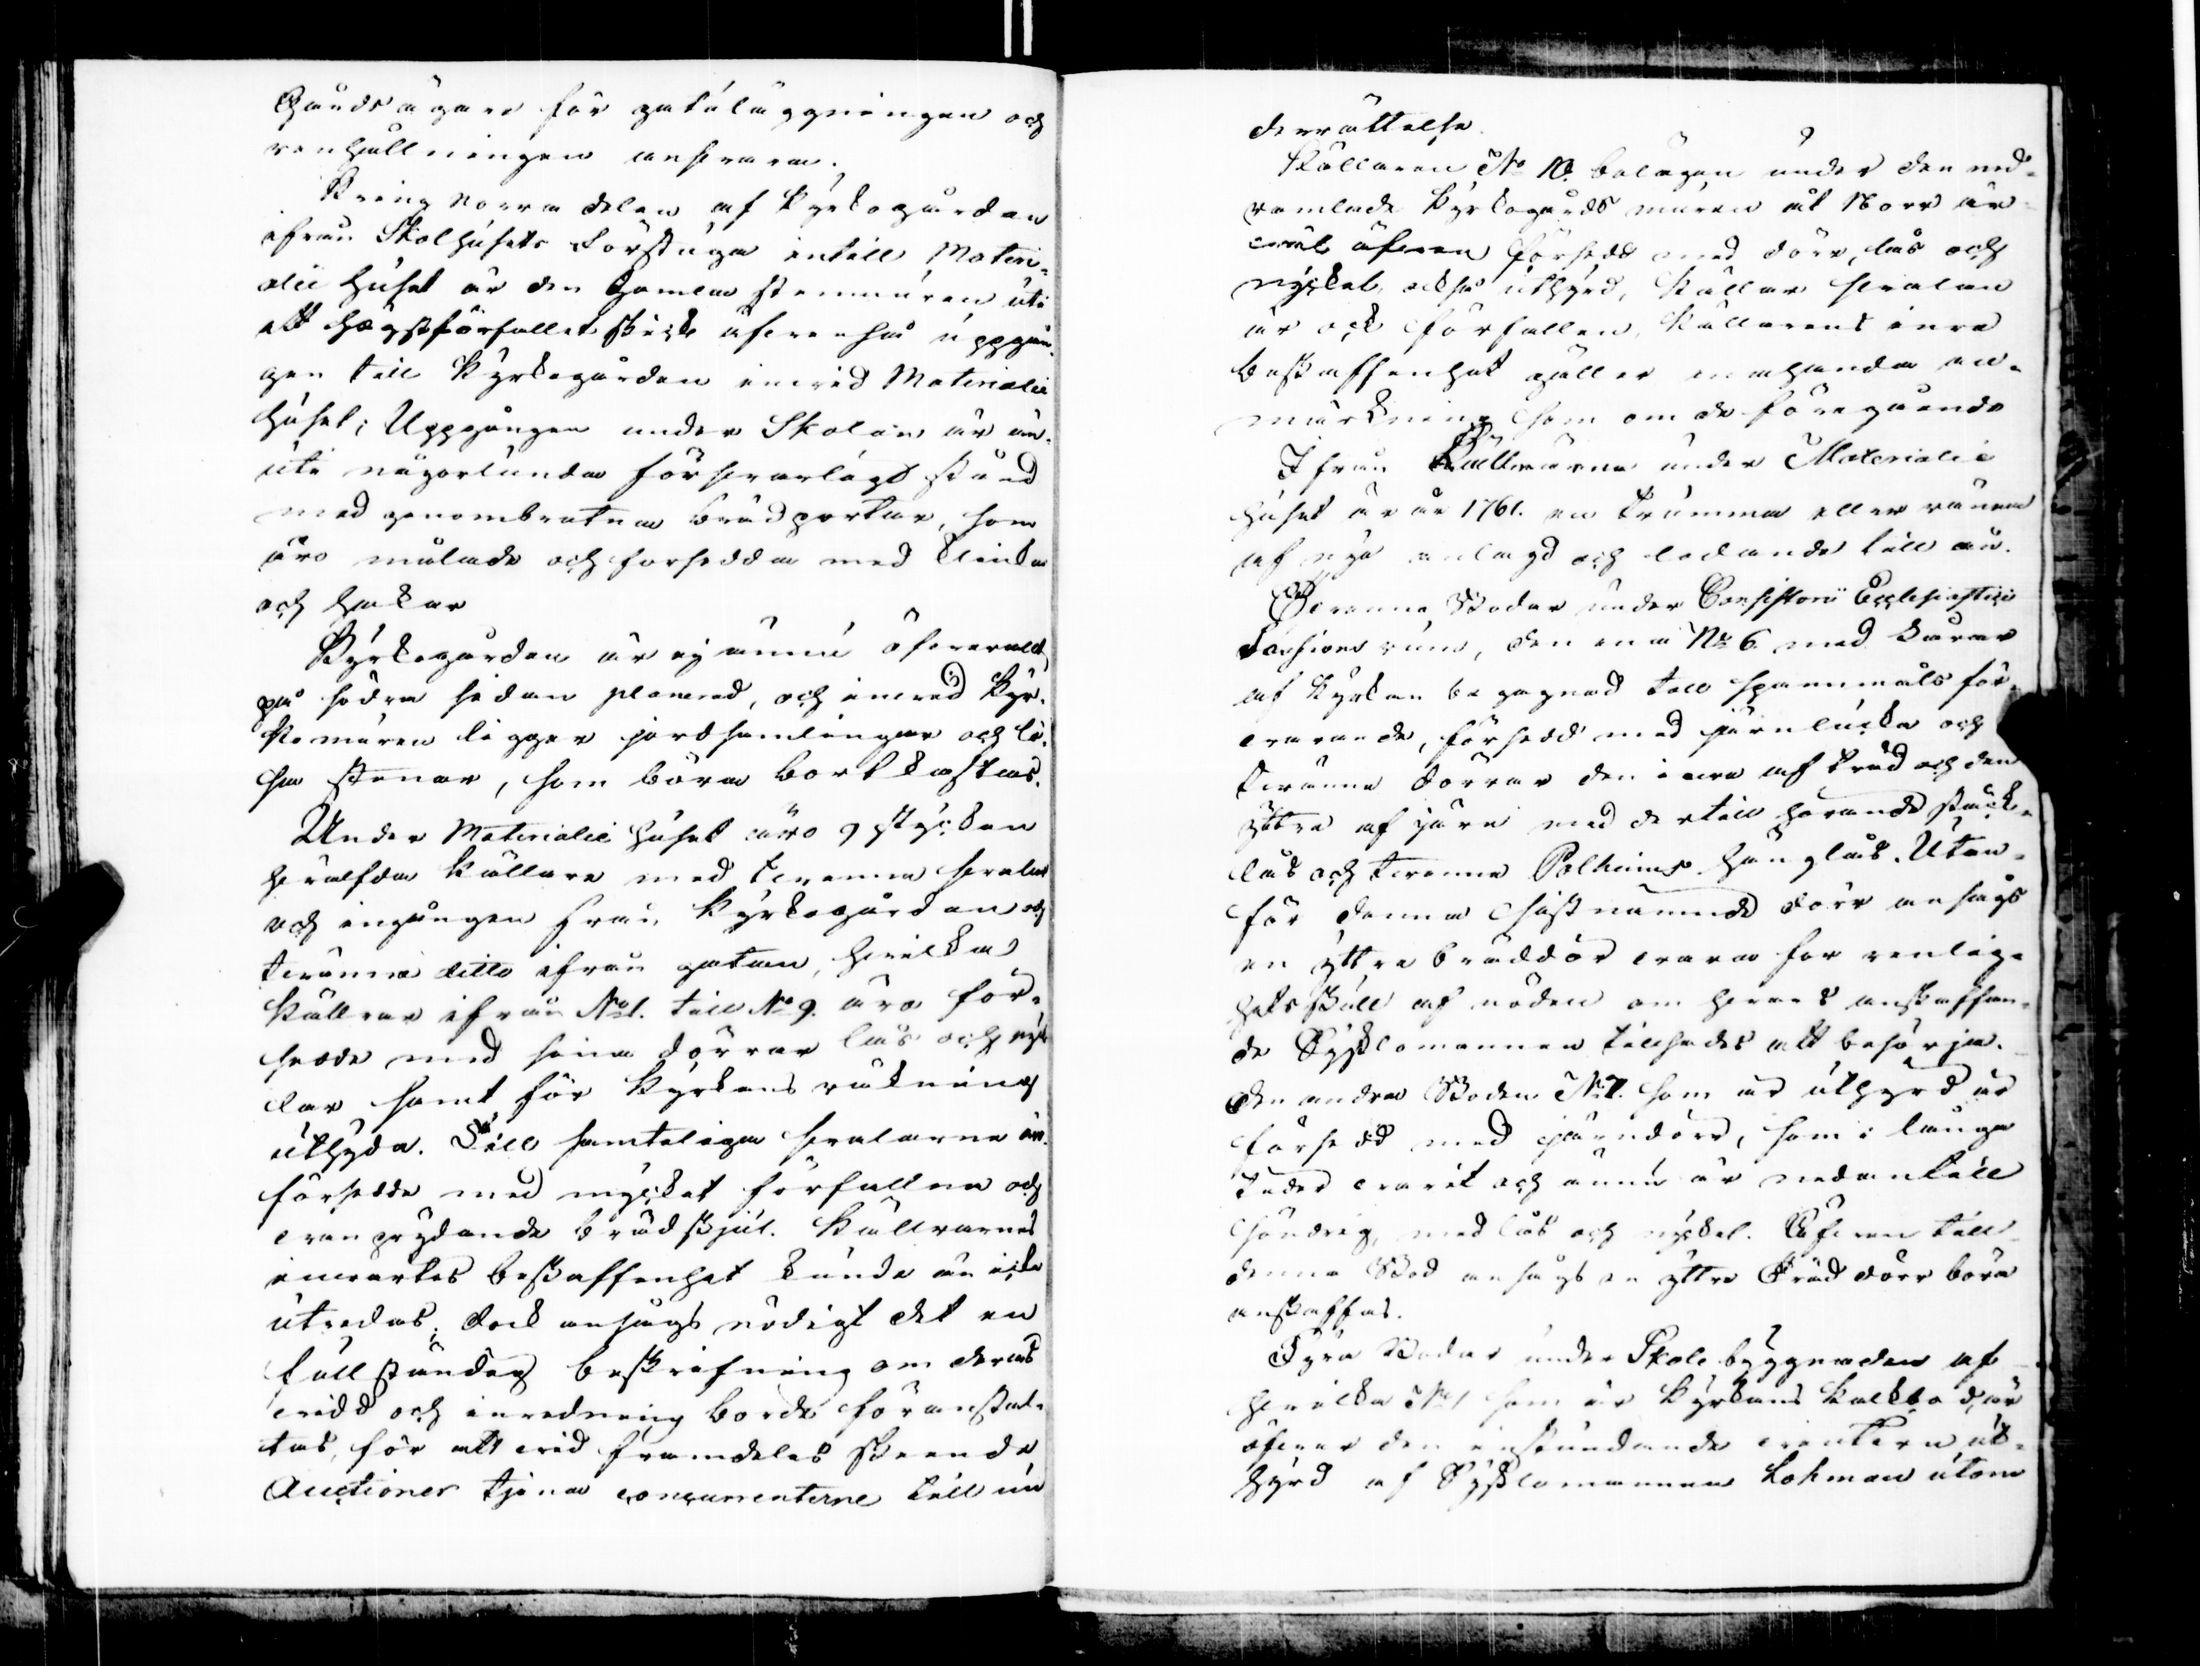 Gårds ägare för gatuläggningen och
renhållningen ansvara.
Kring norra delen af Kyrkogården
ifrån Skolhusets Förstuga intill Materi-
alii huset är den gamla stenmuren uti
ett högst förfallet skick äfvenså uppgån-
gen till Kyrkogården invid Materialii
huset; Uppgången under Skolan är än-
nu uti någorlunda försvarligt stånd
med genombrutna brädportar, som
äro målade och försedda med klinka
och hakar
Kyrkogården är ej ännu öfverallt
på södra sidan planerad, och invid Kyr-
komuren ligger jordsamlingar och lö-
sa stenar, som böra bortkastas.
Under Materialii huset äro 9 stycken
hvälfda källare med tvenne svalar
och ingången från Kyrkogården och
tvänne ditto ifrån gatan, hvilka
källrar ifrån No 1. till No 9. äro för-
sedde med sina dörrar lås och nyck-
lar samt för Kyrkans räkning
uthyrda. Till samtliga svalarne är
försedde med mycket förfallna och
vanprydande brädskjul. Källrarnes
invärtes beskaffenhet kunde nu icke
utredas; dock ansågs nödigt det en
fullständig beskrifning om deras
vidd och inredning borde föranstal-
tas, för att vid framdeles skeende
Auctioner tjena concurrenterne till un-
derrättelse.
Källaren No 10. belägen under den ned-
ramlade Kyrkogårds muren åt Norr är
väl äfven försedd med dörr, lås och
nyckel, också uthyrd, Källar svalen
är ock förfallen, Källarens inre
beskaffenhet gäller enahanda an-
märkning som om de föregående
Ifrån Källrarna under Materialii
huset är år 1761. en trumma eller ränna
af nyo anlagd och ledande till ån.
Tvenne Bodar under Consistorii Ecclesiastici
Sessions rum, den ena No 6 med karar
af Kyrkan begagnad till spannmåls för-
varande, försedd med järnlucka och
tvänne dörrar den inra af träd och den
yttre af järn med dertill hörande stock-
lås och tvenne Polhems hänglås. Utan-
för denna sistnämnde dörr ansågs
en yttre bräddör vara för renlig-
hets skull af nöden om hvars anskaffan-
de Sysslomannen tillsades att besörja.
Den andra Boden No 7. som är uthyrd är
försedd med järndörr, som i långa
tider varit och ännu är nedantill
söndrig, med lås och nyckel. Äfven till
denna Bod ansågs en yttre Träd dörr böra
anskaffas.
Fyra Bodar under Skole byggnaden af
hvilka No 1 som är Kyrkans Kalkbod, är
öfver den instundande vintern ut-
hyrd af Sysslomannen Lohman utom